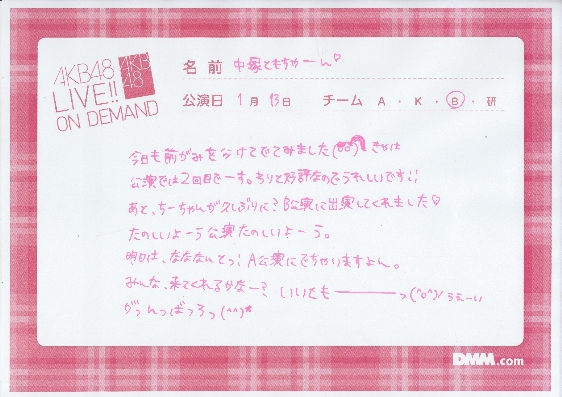 AKB48
LIVE!!
ON DEMAND
AKB
48
名前 中塚ともちゃーん♡
公演日 1月13日 チーム A・K・B・研
今日も前がみを分けてでてみました
公演では2回目でーす。わりと好評なのでうれしいです!!
あと、ちーちゃんが久しぶりに?B公演に出演してくれました♡
たのしいよーう公演たのしいよーう。
明日は、なななんとっ!A公演にでちゃいますよん。
みんな、来てくれるかなー? いいともーーーっ(^o^)/うぇーい
がっんっばっろっ(^^)*
DMM.com